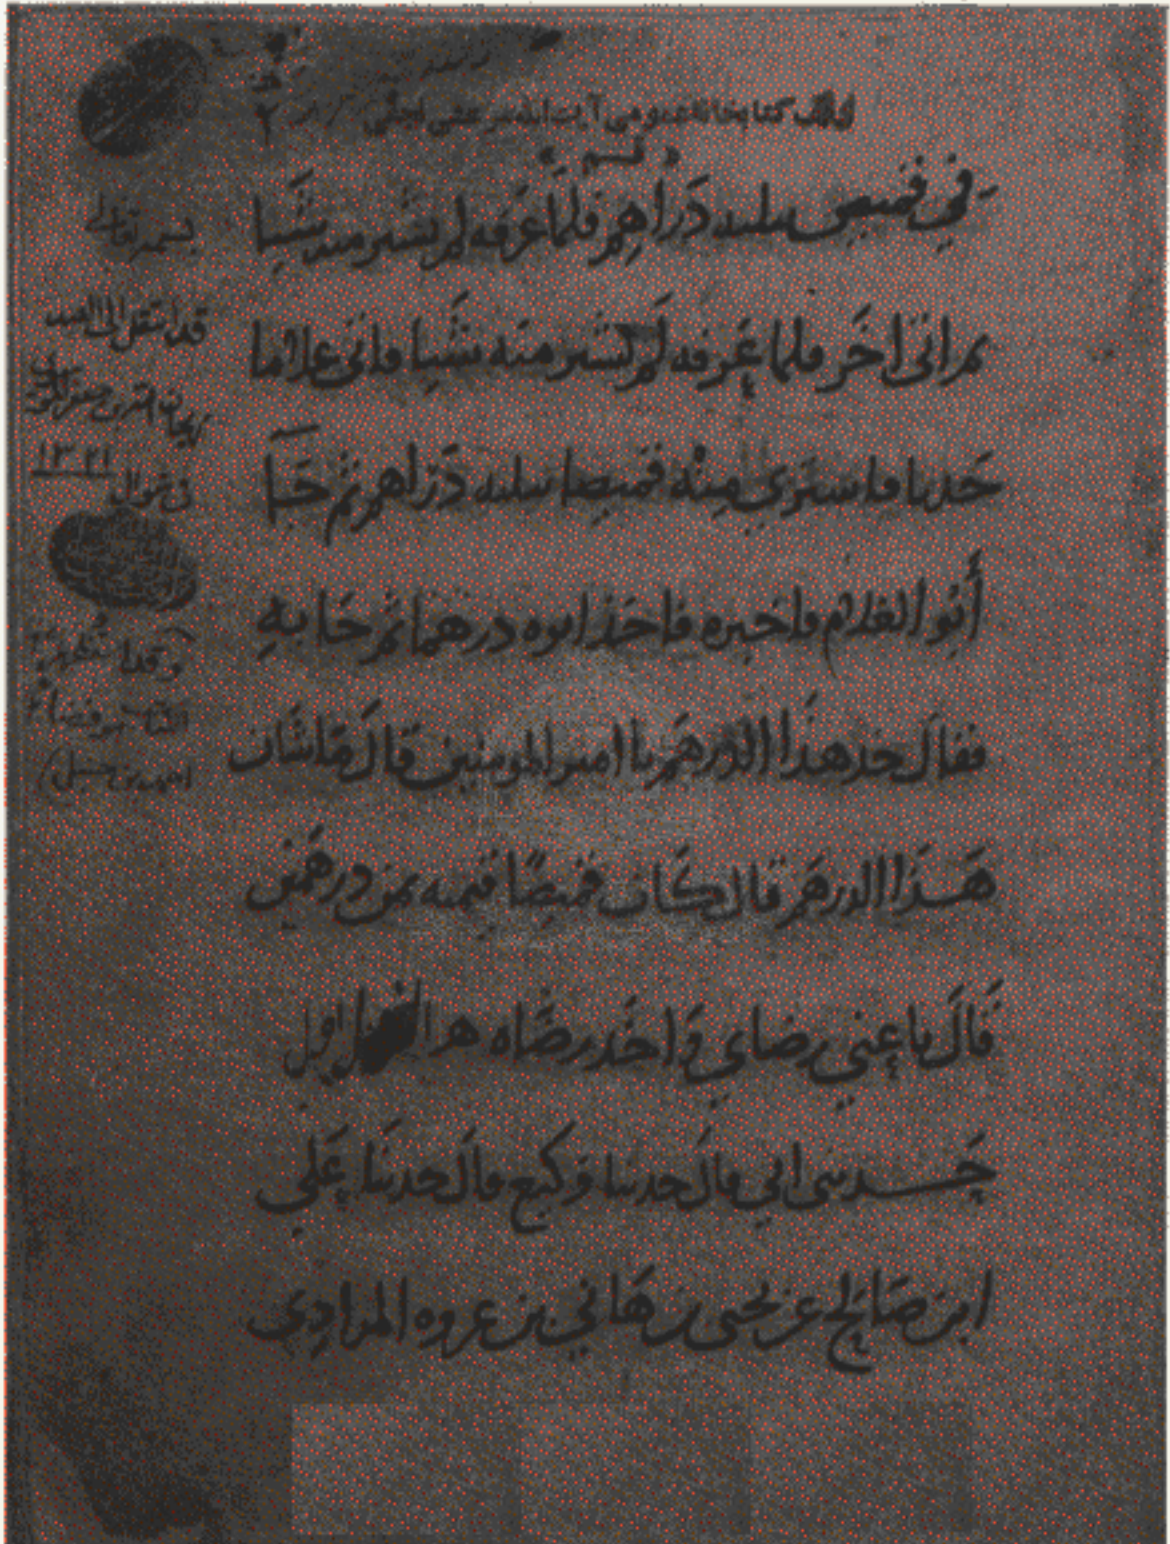 كتابخانه عمومى آيت الله مرعشى نجفى
قم
في قميص بثلثه دَرَاهِم فلمّا عَرَفه لم يشتر منه شَيا
ثم اتى اخَر فلما عَرفه لَم يشتر منه شَيا فاتى غلاما
حَدثا فاستَرى مِنْه قميصا بثلثه دَرَاهم ثم جَا
أبُو الغلام فاخبره فاخَذ ابوه درهما ثم جَا به
فقال خذ هذَا الدّرهَم يا امير المومنين قالَ مَا شَان
هَذَا الدرهَر قال كَان قميصًا قيمه ثمن درهَمين
قَالَ باعني رضاي وَاخَذ رضَاه
حَدثنى ابي قالَ حدثنا وَكيع قالَ حدثنَا عَلي
ابن صَالح عن يحيى بن هَاني بن عروه المرادِي
بسمه تعالى
قد انتقل الى العبد
في شوال ١٣٢١
احمد بن حنبل)